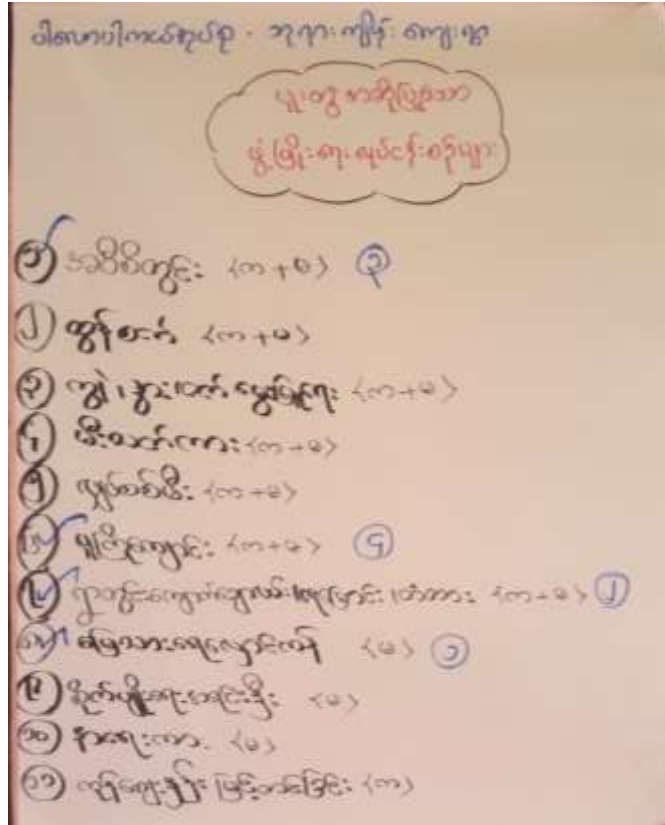 ပါလောပါကယ်အုပ်စု - ဘုရားကျိန်းကျေးရွာ
ပူးတွဲစာဆိုပြုသော
ဖွံ့ဖြိုးရေးလုပ်ငန်းစဉ်များ
၁ အဝီစိတွင်း <က+မ> ၃
၂ ထွန်စက် <က+မ>
၃ ကျွဲ၊ နွား၊ ဝက် မွေးမြူရေး <က+မ>
၄ မီးသတ်ကား <က+မ>
၅ လျှပ်စစ်မီး <က+မ>
၆ မူကြိုကျောင်း <က+မ> ၄
၇ ရွာတွင်းကျောက်ချောလမ်း၊ ရေမြောင်း၊ တံတား <က+မ> ၂
၈ မြေသားရေလှောင်ကန် <မ> ၁
၉ စိုက်ပျိုးရေးအရင်းအနှီး <မ>
၁၀ နာရေးကား <မ>
၁၁ ကုန်ဈေးနှုန်း မြှင့်တင်ခြင်း <က>